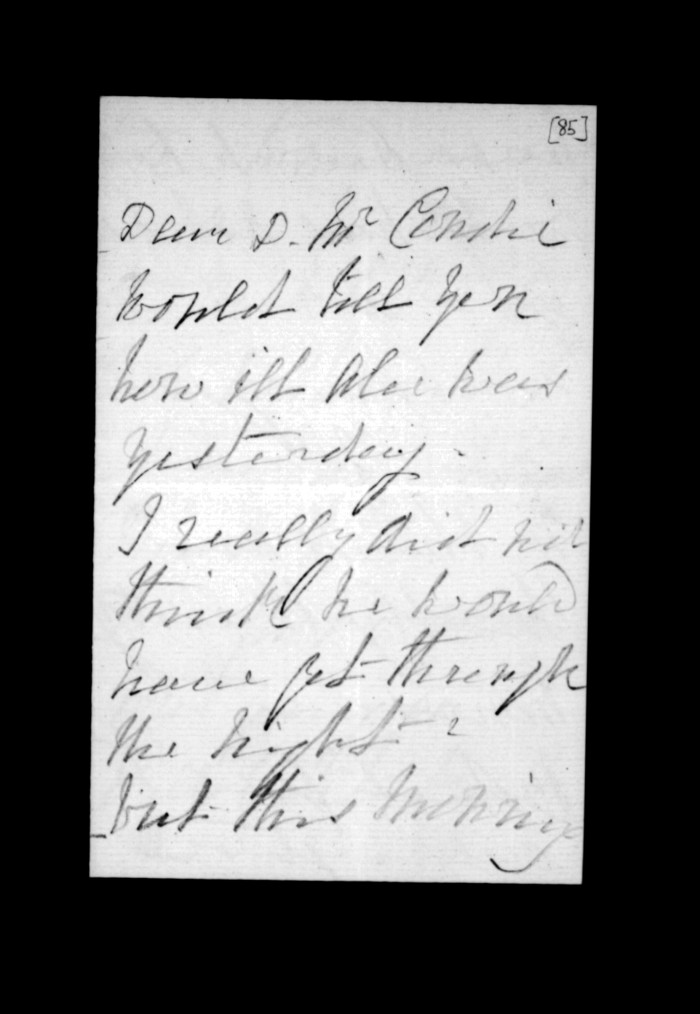 [85]
Dear D. Mr Condie
would tell you
how ill Alec was
yesterday -
I really did not
think he would
have got through
the night &
but this morning